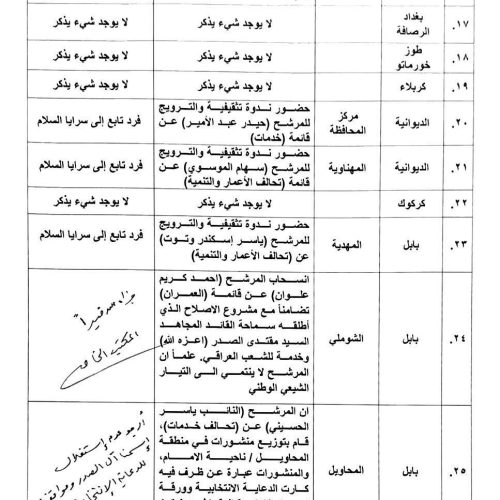 ١٧. بغداد الرصافة لا يوجد شيء يذكر لا يوجد شيء يذكر
١٨. طوز خورماتو لا يوجد شيء يذكر لا يوجد شيء يذكر
١٩. كربلاء لا يوجد شيء يذكر لا يوجد شيء يذكر
٢٠. الديوانية مركز المحافظة
حضور ندوة تثقيفية والترويج
للمرشح (حيدر عبد الأمير) عن
قائمة (خدمات)
فرد تابع إلى سرايا السلام
٢١. الديوانية المهناوية
حضور ندوة تثقيفية والترويج
للمرشح (سهام الموسوي) عن
قائمة (تحالف الأعمار والتنمية)
فرد تابع إلى سرايا السلام
٢٢. كركوك لا يوجد شيء يذكر لا يوجد شيء يذكر
٢٣. بابل المهدية
حضور ندوة تثقيفية والترويج
للمرشح (ياسر إسكندر وتوت)
عن (تحالف الأعمار والتنمية)
فرد تابع إلى سرايا السلام
٢٤. بابل الشوملي
انسحاب المرشح (احمد كريم
علوان) عن قائمة (العمران)
تضامناً مع مشروع الاصلاح الذي
أطلقه سماحة القائد المجاهد
السيد مقتدى الصدر (اعزه الله)
وخدمة للشعب العراقي. علماً ان
المرشح لا ينتمي الى التيار
الشيعي الوطني
٢٥. بابل المحاويل
ان المرشح (النائب ياسر
الحسيني) عن (تحالف خدمات)،
قام بتوزيع منشورات في منطقة
المحاويل / ناحية الامام،
والمنشورات عبارة عن ظرف فيه
كارت الدعاية الانتخابية وورقة
أريد عدم إستغلال